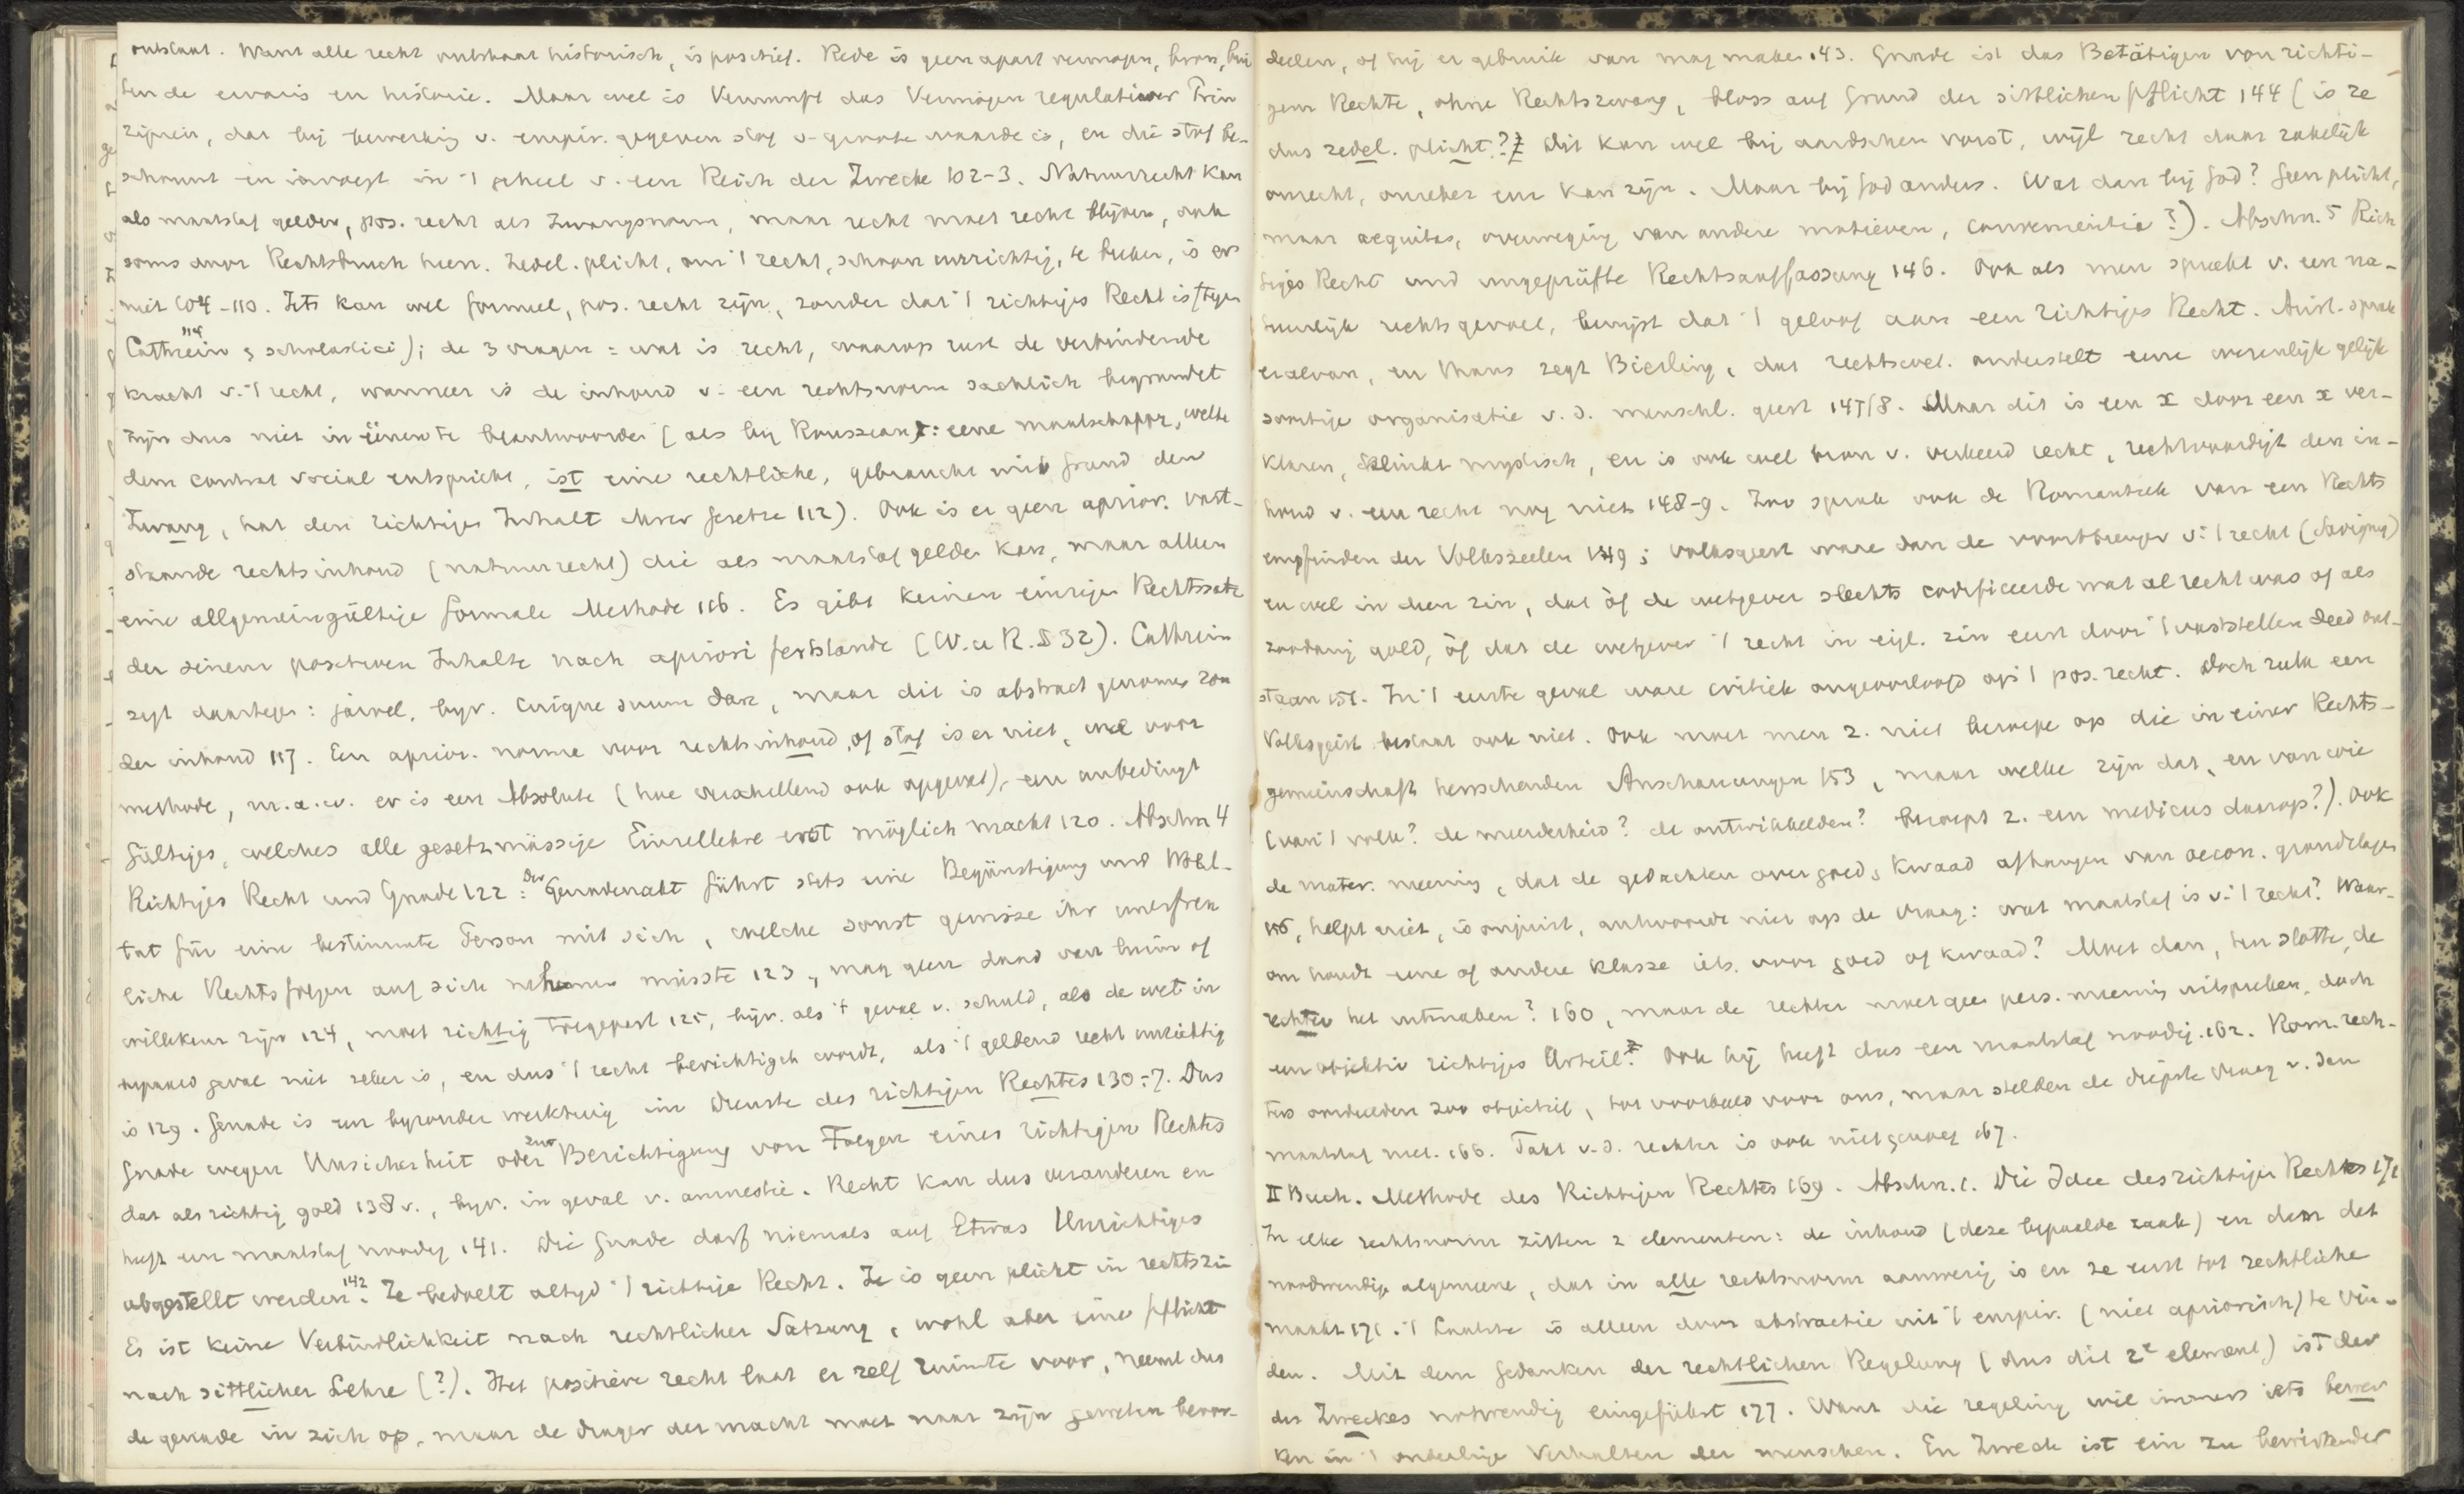 ontstaat. Want alle recht ontstaat historisch, is positief. Rede is geen apart vermogen, bron, bui
ten de ervaris en historie. Maar wel is Vernunft das Vermögen regulativer Prin
zipien, dat bij bewerking v. empir. gegeven stof v. groote waarde is, en die stof be-
schouwt en invoegt in 't geheel v. een Reich der Zwecke 102-3. Natuurrecht kan
als maatstaf gelden, pos. recht als Zwangsnorm, maar recht moet recht blijven, ook
soms door Rechtsbruch heen. Zedel. plicht, om 't recht, schoon unrichtig, te breken, is er
niet 104-110. Iets kan wel formeel, pos. recht zijn, zonder dat 't richtiges Recht is (tegen
Cathrein 114 & scholastici); de 3 vragen: wat is recht, waarop rust de verbindende
kracht v. 't recht, wanneer is de inhoud v. een rechtsnorm sachlich begründet
zijn dus niet in eenen te beantwoorden (als bij Rousseau: eene maatschappij, welke
dem contrat social entspricht, ist eine rechtliche, gebraucht mit Grund den
Zwang, hat den richtigen Inhalt ihrer Gesetze 112). Ook is er geen aprior. vast-
staande rechtsinhoud (natuurrecht) die als maatstaf gelden kan, maar alleen
eine allgemeingültige formale Methode 116. Es gibt keinen einzigen Rechtssatz
der seinem positiven Inhalte nach apriori feststände (W. u R. § 32). Cathrein
zegt daartegen: jawel, bijv. cuique suum dare, maar dit is abstract genomen zon
der inhoud 117. Een aprior. norme voor rechtsinhoud, of stof is er niet, wel voor
methode, m.a.w. er is een Absolute (hoe verschillend ook opgevat), een unbedingt
Gültiges, welches alle gesetzmässige Einzellehre erst möglich macht 120. Abschn 4
Richtiges Recht und Gnade 122: Der Gnadenakt führt stets eine Begünstigung und Wohl-
tat für eine bestimmte Person mit sich, welche sonst gewisse ihr unerfreu
liche Rechtsfolgen auf sich nehmen müsste 123, mag geen daad van luim of
willekeur zijn 124, moet richtig toegepast 125, bijv. als 't geval v. schuld, als de wet in
bepaald geval niet zeker is, en dus 't recht berichtigen wordt, als 't geldend recht unrichtig
is 129. Genade is een bijzonder werktuig im Dienste des richtigen Rechtes 130-7. Dus
Gnade wegen Unsicherheit oder zur Berichtigung von Folgen eines richtigen Rechts
dat als richtig gold 138v., bijv. in geval v. amnestie. Recht kan dus veranderen en
heeft een maatstaf noodig 141. Die Gnade darf niemals auf Etwas Unrichtiges
abgestellt werden 142. Ze bedoelt altijd 't richtige Recht. Ze is geen plicht in rechtszin
Es ist keine Verbindlichkeit nach rechtlicher Satzung, wohl aber eine Pflicht
nach sittlicher Lehre (?). Het positieve recht laat er zelf ruimte voor, neemt dus
de genade in zich op, maar de drager der macht moet naar zijn geweten beoor-
deelen, of hij er gebruik van mag maken 143. Gnade ist das Betätigen von richti-
gem Rechte, ohne Rechtszwang, bloss auf Grund der sittlichen Pflicht 144 (is ze
dus zedel. plicht?? Dit kan wel bij aardschen vorst, wijl recht daar zakelijk
onrecht, onzeker enz kan zijn. Maar bij God anders. Wat dan bij God? Geen plicht,
maar aequitas, overweging van andere motieven, convenientia?). Abschn. 5 Rich
tiges Recht und ungeprüfte Rechtsauffassung 146. Ook als men spreekt v. een na-
tuurlijk rechtsgevoel, bewijst dat 't geloof aan een richtiges Recht. Arist. sprak
er al van, en thans zegt Bierling, dat rechtsgevoel onderstelt eene wezenlijk gelijk
soortige organisatie v. d. menschl. geest 147/8. Maar dit is een x door een x ver-
klaren, klinkt mystisch, en is ook wel bron v. verkeerd recht, rechtvaardigt den in-
houd v. een recht nog niet 148-9. Zoo sprak ook de Romantiek van een Rechts
empfinden der Volksseelen 149; volksgeest ware dan de voortbrenger v. 't recht (Savigny)
en wel in dien zin, dat òf de wetgever slechts codificeerde wat al recht was of als
zoodanig gold, òf dat de wetgever 't recht in eigl. zin eerst door 't vaststellen deed ont-
staan 151. In 't eerste geval ware critiek ongeoorloofd op 't pos. recht. Doch zulk een
Volksgeist bestaat ook niet. Ook moet men z. niet beroepe op die in einer Rechts-
gemeinschaft herrschenden Anschauungen 153, maar welke zijn dat, en van wie
(van 't volk? de meerderheid? de ontwikkelden? beroept z. een medicus daarop?). Ook
de mater. meening, dat de gedachten over goed & kwaad afhangen van oecon. grondslagen
156, helpt niet, is onjuist, antwoordt niet op de vraag: wat maatstaf is v. 't recht? Waar-
om houdt eene of andere klasse iets voor goed of kwaad? Moet dan, ten slotte, de
rechter het uitmaken? 160, maar de rechter moet geen pers. meening uitspreken, doch
een objektiv richtiges Urteil? Ook hij heeft dus een maatstaf noodig. 162. Rom. rech-
ters oordeelden zoo objectief, tot voorbeeld voor ons, maar stelden de diepste vraag v. den
maatstaf niet. 166. Takt v. d. rechter is ook niet genoeg 167.
II Buch. Methode des Richtigen Rechtes 169. Abschn. 1. Die Idee des richtigen Rechtes 171
In elke rechtsnorm zitten 2 elementen: de inhoud (deze bepaelde zaak) en dan dat
noodwendige algemeene, dat in alle rechtsnorm aanwezig is en ze eerst tot rechtliche
maakt 171. 't Laatste is alleen door abstractie uit 't empir. (niet apriorisch) te vin-
den. Mit dem Gedanken der rechtlichen Regelung (dus dit 2e element) ist der
des Zweckes notwendig eingeführt 177. Want die regeling wil immers iets bewer
ken in 't onderlinge Verhalten der menschen. En Zweck ist ein zu bewirkender